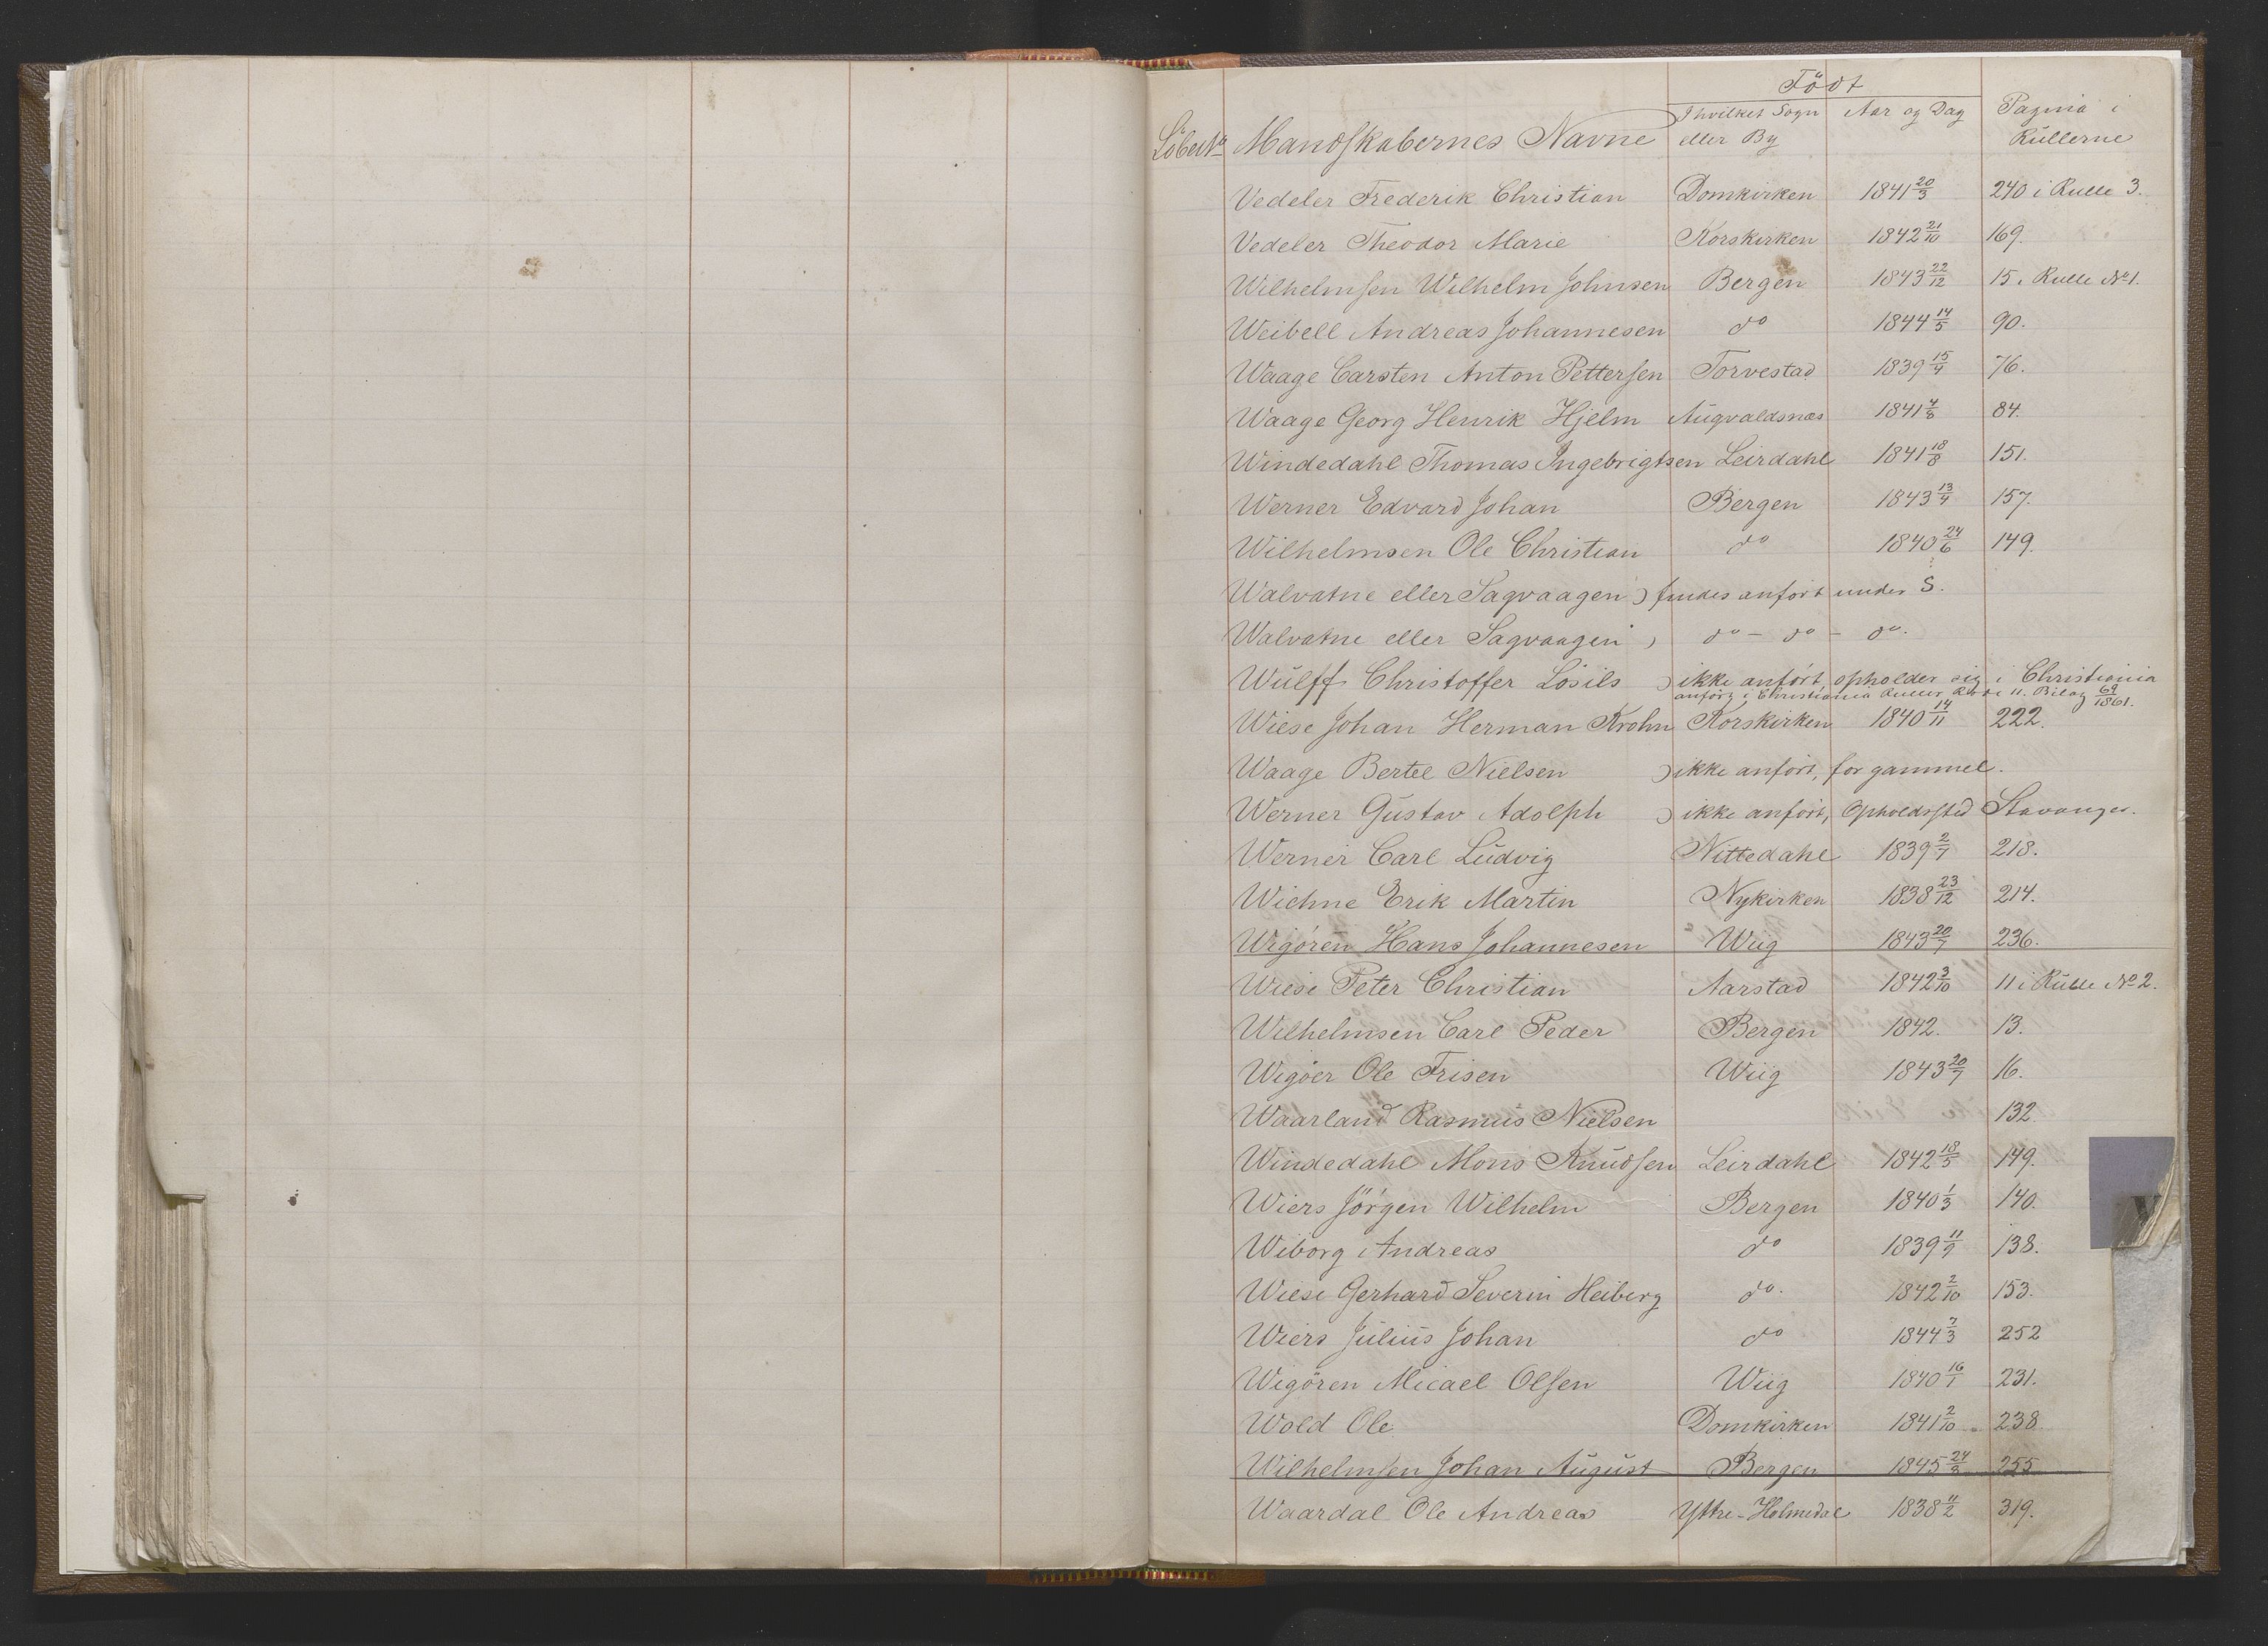 Födt
Löbe No Mandskabernes Navne I hvilket Sogn eller By Aar og Dag Pagina i Rullerne
Vedeler Frederik Christian Domkirken 1841 20/3 240 i Rulle 3.
Vedeler Theodor Marie Korskirken 1842 21/10 169.
Wilhelmsen Wilhelm Johnsen Bergen 1843 22/12 15 i Rulle No 1.
Weibell Andreas Johannesen do 1844 14/5 90.
Waage Carsten Anton Pettersen Torvestad 1839 15/4 76.
Waage Georg Henrik Hjelm Augvaldsnæs 1841 4/8 84.
Windedahl Thomas Ingebrigtsen Leirdahl 1841 18/8 151.
Werner Edvard Johan Bergen 1843 13/4 157.
Wilhelmsen Ole Christian do 1840 24/6 149.
Walvatne eller Sagvaagen ) findes anført under S.
Walvatne eller Sagvaagen ) do - do - do.
Wulff Christoffer Losils ) ikke anført, opholder sig i Christiania
anførg i Christiania Ruller 11. Bilag 69/1861.
Wiese Johan Herman Krohn Korskirken 1840 14/11 222.
Waage Bertel Nielsen ) ikke anført, for gammel.
Werner Gustav Adolph ) ikke anført, Opholdssted Stavanger.
Werner Carl Ludvig Nittedahl 1839 2/7 218.
Wichne Erik Martin Nykirken 1838 23/12 214.
Wigören Hans Johannesen Wiig 1843 20/7 236.
Wiese Peter Christian Aarstad 1842 3/10 11 i Rulle No 2.
Wilhelmsen Carl Peder Bergen 1842. 13.
Wigöer Ole Frisen Wiig 1843 20/7 16.
Waarland Rasmus Nielsen 132.
Windedahl Mons Knudsen Leirdahl 1842 18/5 149.
Wiers Jörgen Wilhelm Bergen 1840 1/3 140.
Wiborg Andreas do 1839 11/9 138.
Wiese Gerhard Severin Heiberg do. 1842 2/10 153.
Wiers Julius Johan do 1844 7/3 252
Wigören Micael Olsen Wiig 1840 16/1 231.
Wold Ole Domkirken 1841 2/10 238
Wilhelmsen Johan August Bergen 1845 24/8 255
Waardal Ole Andreas Yttre-Holmedal 1838 11/2 319.